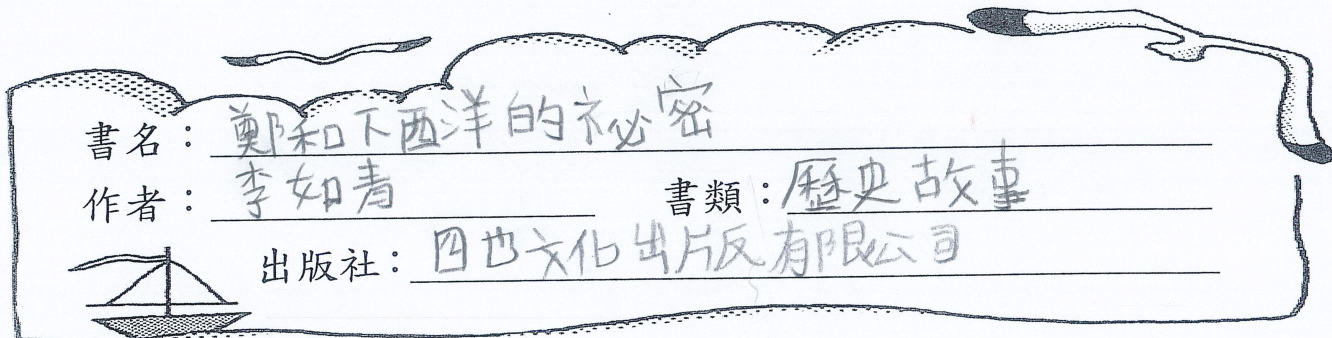 書名：鄭和下西洋的祕密
作者：李如青 書類：歷史故事
出版社：四也文化出版有限公司